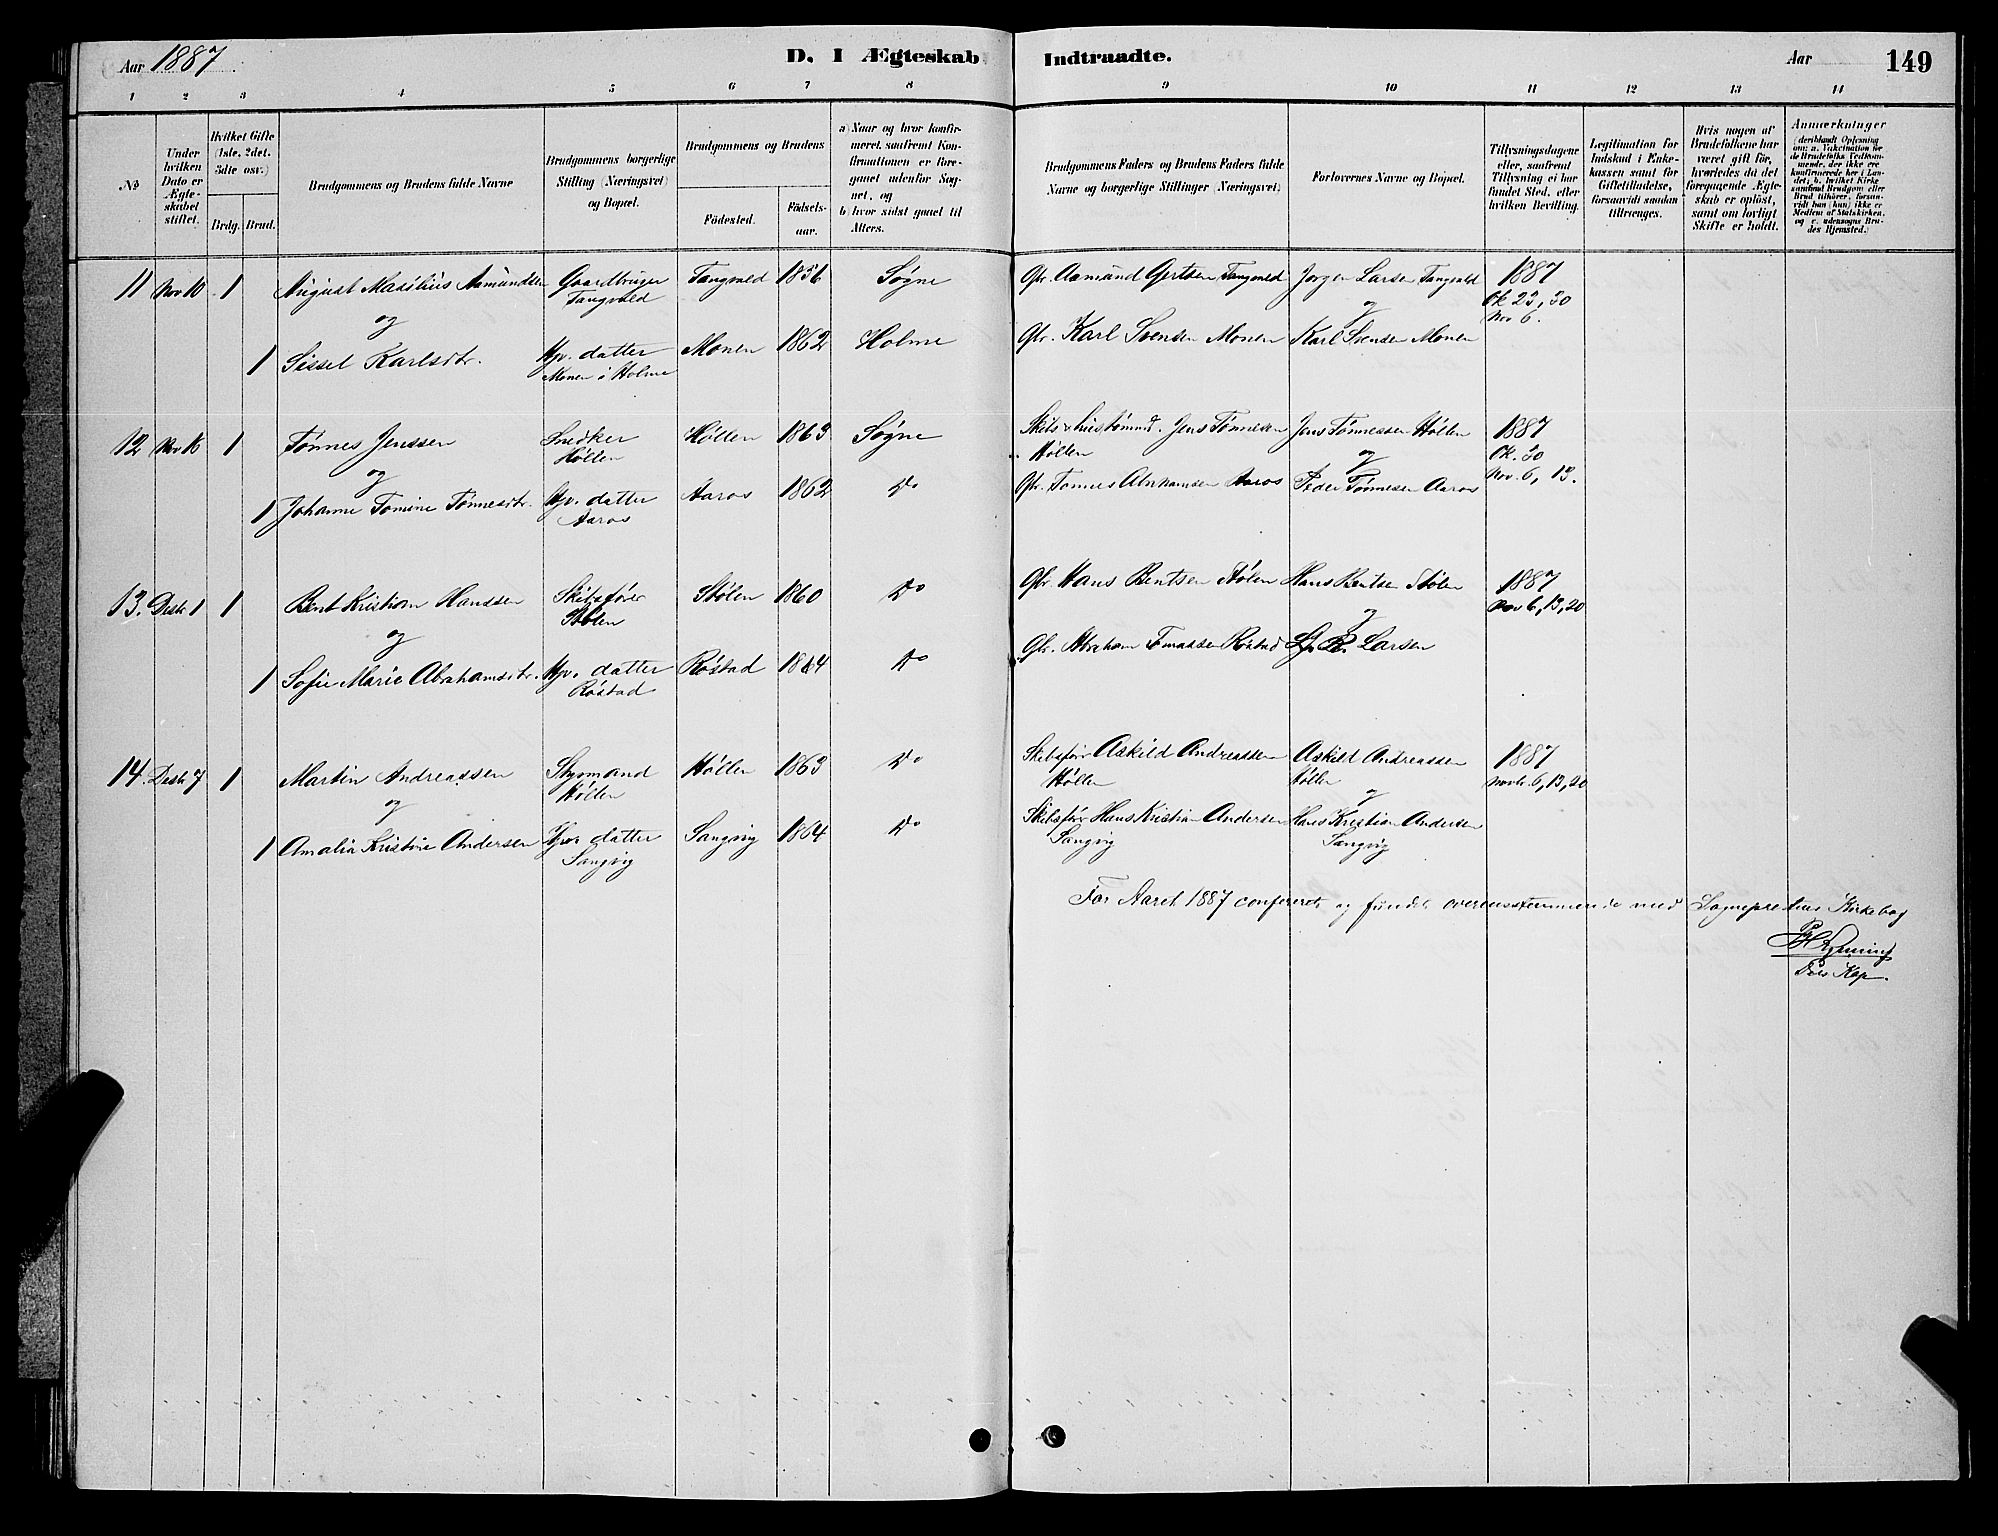 Aar 1887
D. I Ægteskab Indtraadte.
Aar
149
1 2 3 4 5 6 7 8 9 10 11 12 13 14
No
Under hvilken Dato er Ægteskabet stiftet.
Hvilket Gifte (1ste, 2det, 3dte osv.)
Brdg. Brud.
Brudgommens og Brudens fulde Navne
Brudgommens borgerlige Stilling (Næringsvei) og Bopæl.
Brudgommens og Brudens
Födested.
Födselsaar.
a) Naar og hvor konfirmeret, samfremt Konfirmationen er foregaaet udenfor Sognet, og
b) hvor sidst gaaet til Alters.
Brudgommens Faders og Brudens Faders fulde Navne og borgerlige Stillinger (Næringsvei)
Forlovernes Navne og Bopæl.
Tillysningsdagene eller, samfremt Tillysning ei har fundet Sted, efter hvilken Bevilling.
Legitimation for Indskud i Enkekassen samt for Giftetilladelse, forsaavidt saadan tiltrænges.
Hvis nogen af Brudefolkene har været gift för, hvorledes da det foregaaende Ægteskab er oplöst, samt om lovligt Skifte er holdt.
Anmærkninger
11 Nov 10 1 August Masilius Aamundsen Gaardbruger Tangvald Tangvald 1856 Søgne Gbr. Aamund Gertsen Tangvald Jørgen Larsen Tangvald 1887 Ok 23, 30 Nov 6.
og
1 Sissel Karlsdtr. Hjv. datter Monen i Holme Monen 1862 Holme Gbr. Karl Svensen Monen Karl Svensen Monen
12 Nov 16 1 Tønnes Jenssen Snedker Høllen Høllen 1863 Søgne Jens Tønnesen Høllen Jens Tønnessen Høllen 1887 Ok. 30 Nov. 6, 13.
og
1 Johanne Tomine Tønnesdtr. Hjv. datter Aaros Aaros 1862 Do Gbr. Tønnes Abrahamsen Aaros Peder Tønnesen Aaros
13. Desbr 1 1 Bent Kristian Hanssen Skibsfører Stølen Stølen 1860 Do Gbr. Hans Bentsen Stølen Hans Bentsen Stølen 1887 Nov 6, 13, 20
og
1 Sofie Marie Abrahamsdtr. Hjv. datter Røstad Røstad 1864 Do Gbr. Abraham Tomassen Røstad Larsen
14. Desb 7 1 Martin Andreassen Styrmand Høllen Høllen 1863 Do Skibsfør Askild Andreassen Høllen Askild Andreassen Høllen 1887 Novb. 6, 13, 20
og
1 Amalia Kristine Andersen Hjv. datter Langvig Langvig 1864 Do Skibsfør Hans Kristian Andersen Langvig Hans Kristian Andersen Langvig
For Aaret 1887 confereret og fundet overensstemmende med Sognepræstens Kirkebog